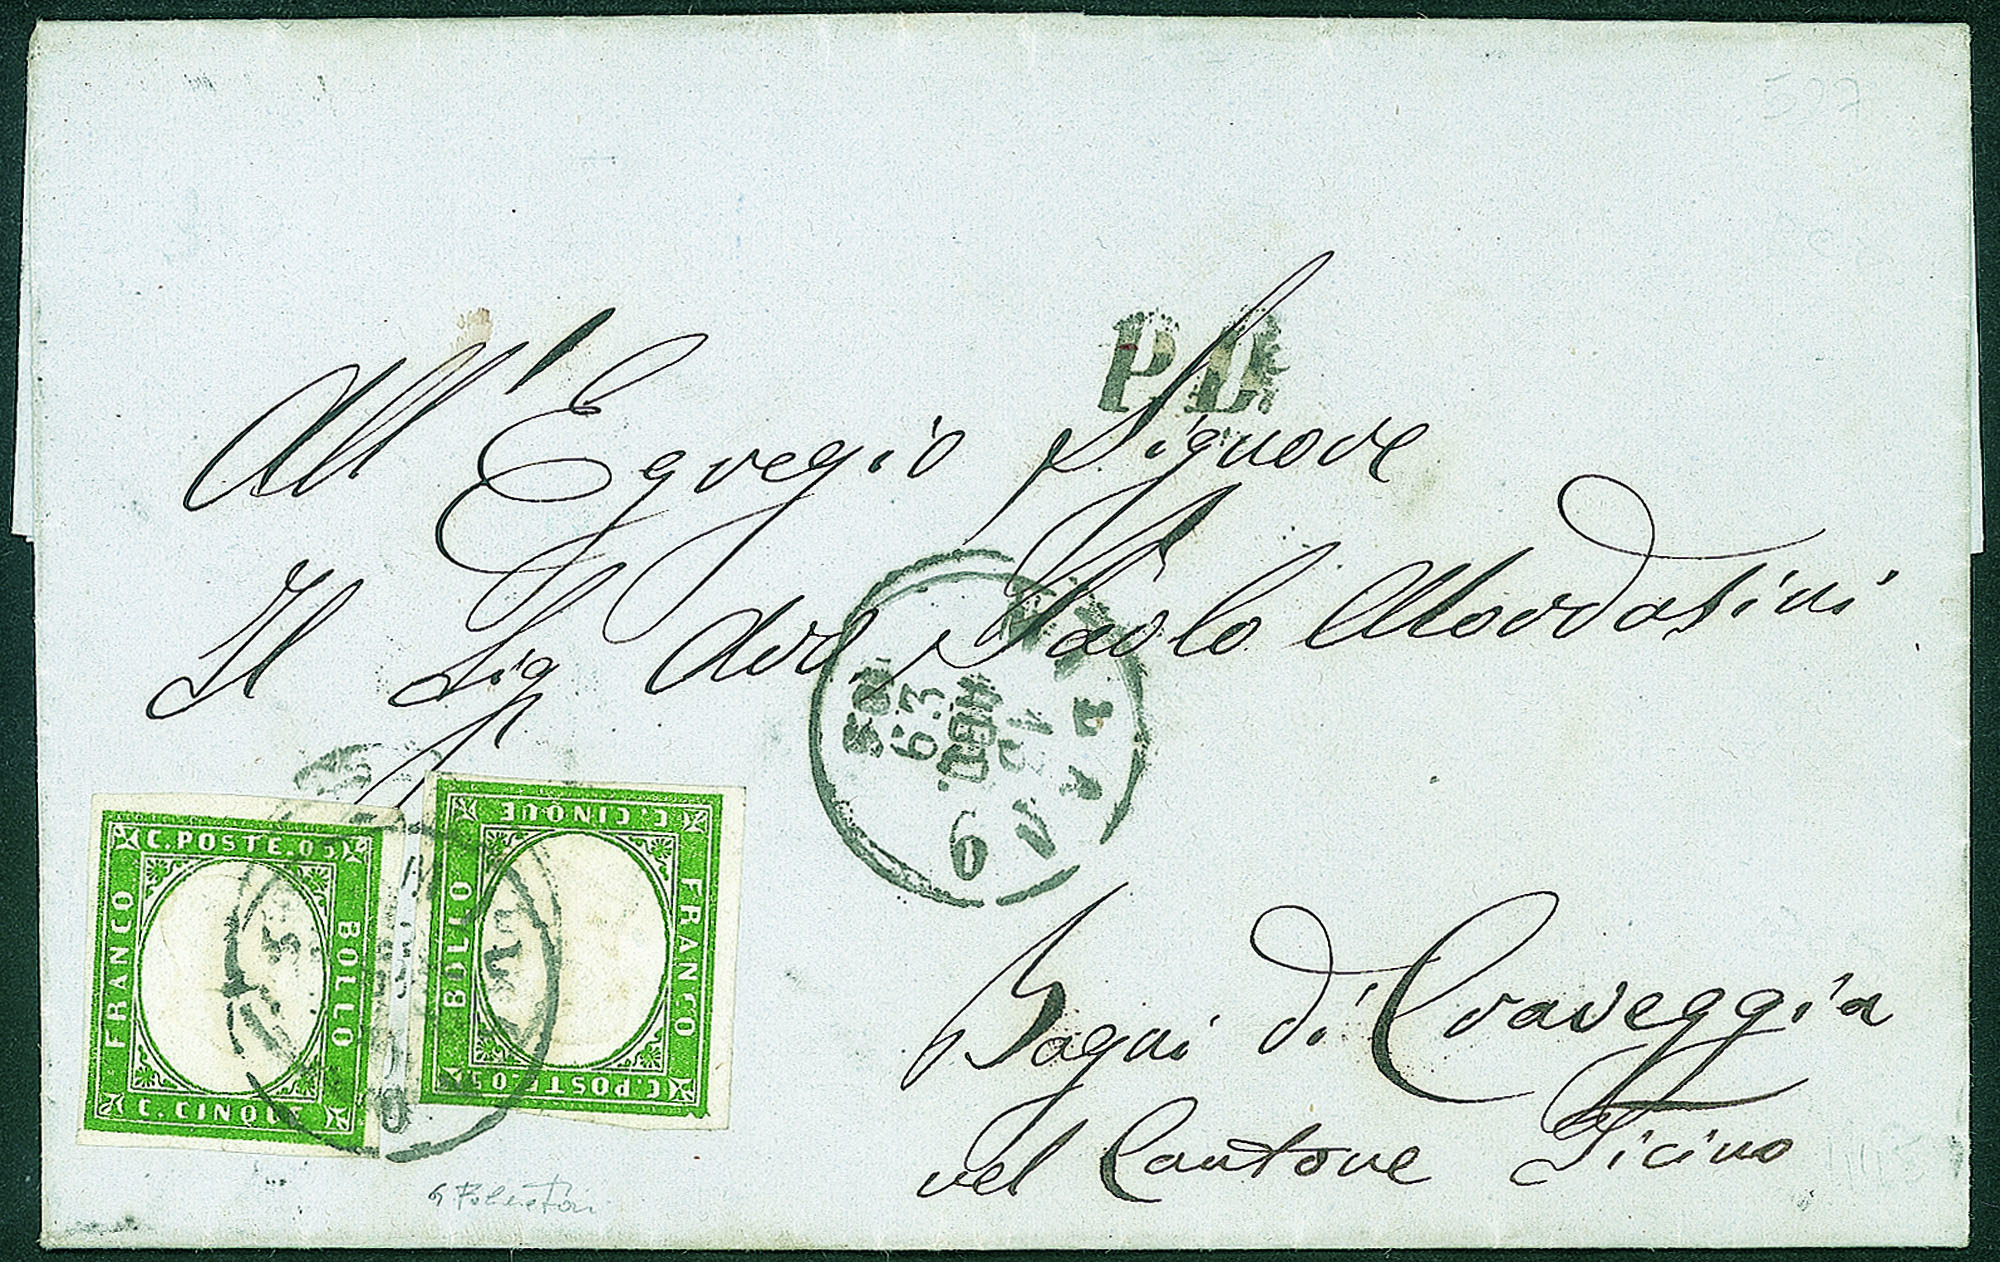 597
P.D.
All' Egregio Signore
Il Sig Avv Paolo Mordasini
MILANO
13
AGO.
63
6
C. POSTE.05
FRANCO
BOLLO
C. CINQUE
C. CINQUE
BOLLO
FRANCO
C. POSTE.05
Bagni di Craveggia
nel Cantone Ticino